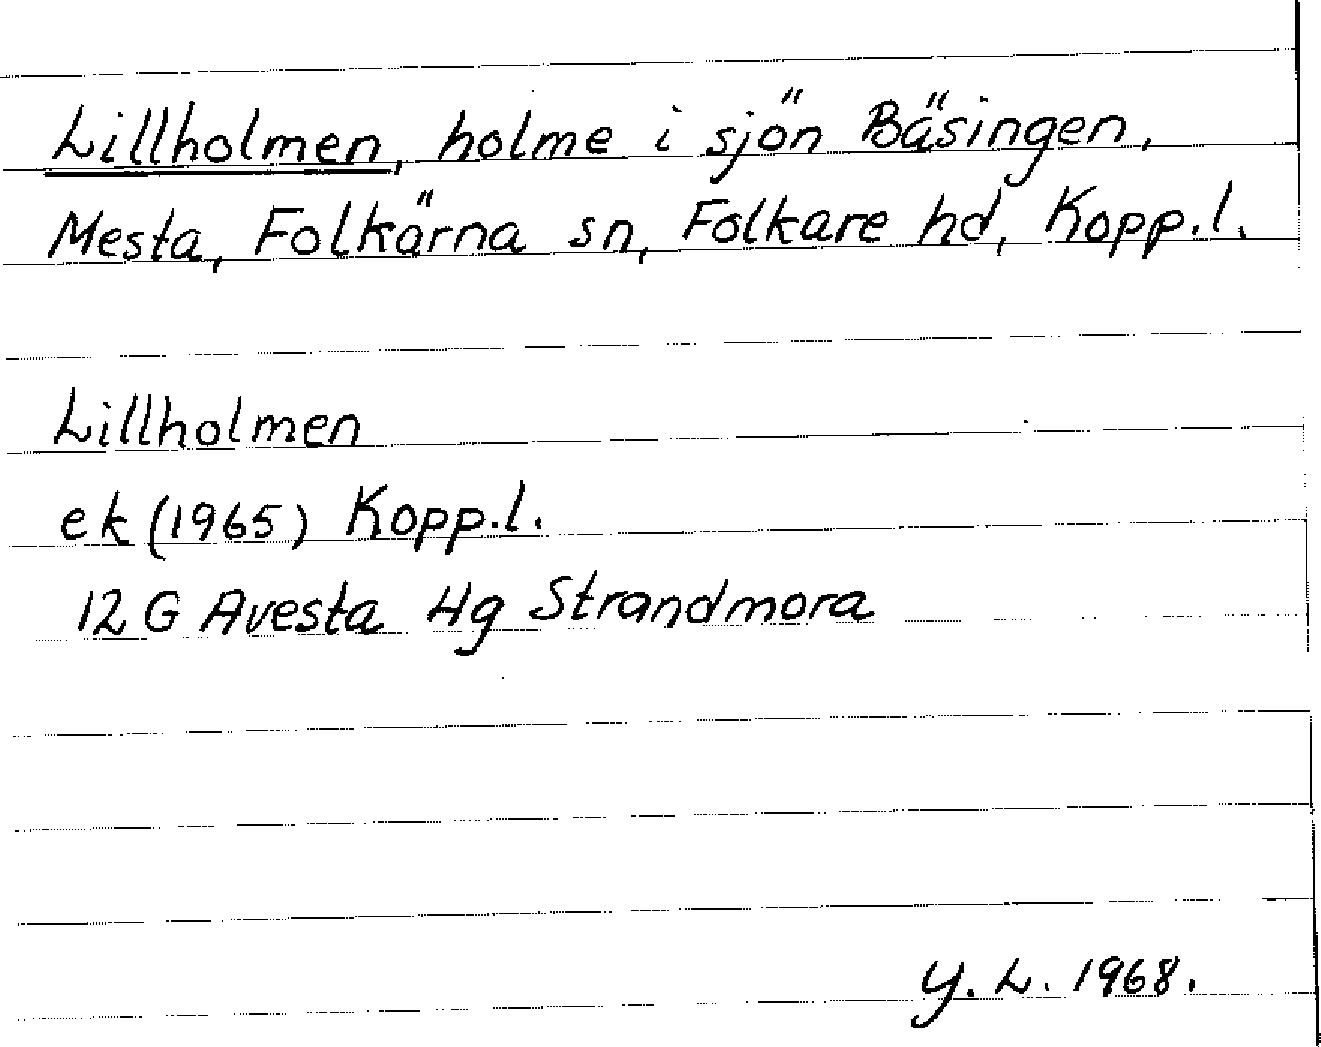 Lillholmen, holme i sjön Bäsingen,
Mesta, Folkärna sn, Folkare hd, Kopp.l.
Lillholmen
ek (1965) Kopp.l.
12 G Avesta 4g Strandmora
Y. L. 1968.